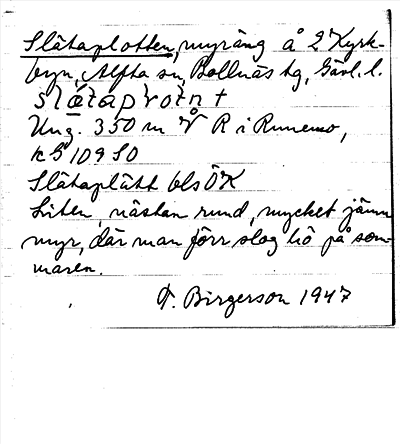 Slätaplotten, myräng å 2 Kyrk-
byn, Alfta sn, Bollnäs tg, Gävl. l.
Ung. 350 m V R i Runemo,
k S 109 SO
Slätaplätt bls ÖK
Liten, nästan rund, mycket jämn
myr, där man förr slog hö på som-
maren.
F. Birgerson 1947